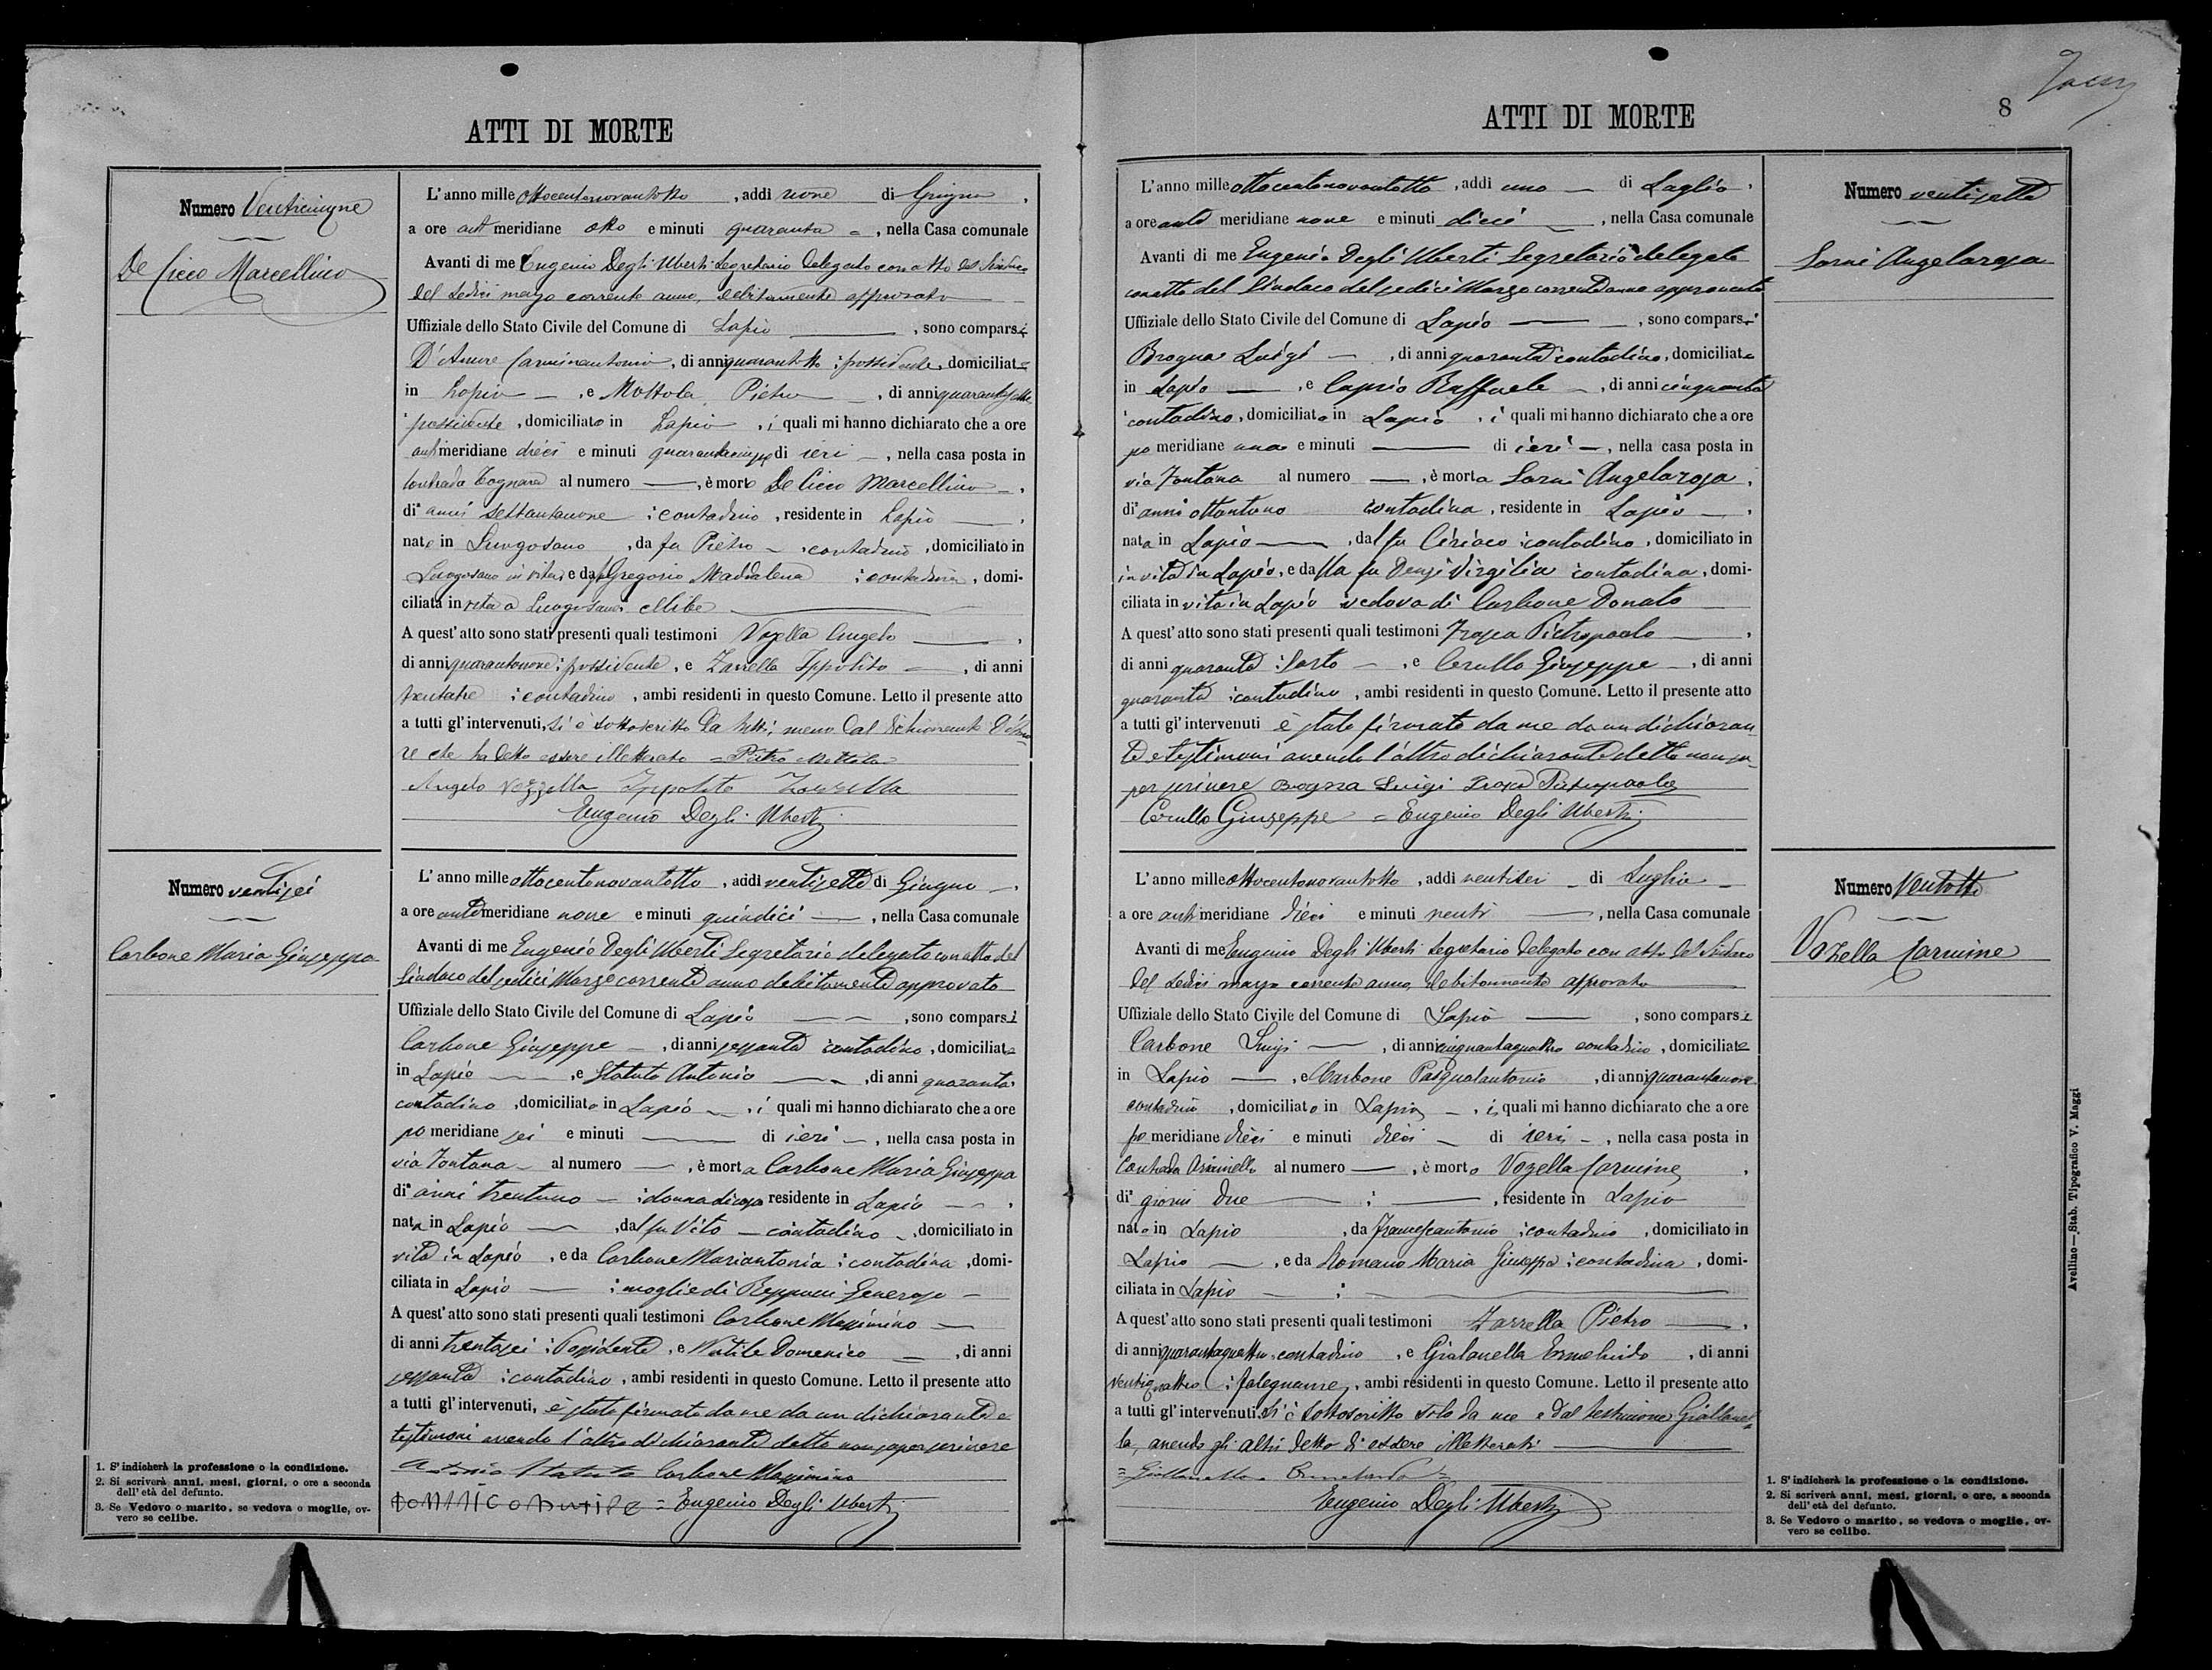 ATTI DI MORTE
Numero Venticinque
De Cicco Marcellino
L'anno mille ottocentonovantotto, addì nove di Giugno,
a ore anti meridiane otto e minuti quaranta, nella Casa comunale
Avanti di me Eugenio Degli Uberti Segretario delegato con atto del Sindaco
del sedici marzo corrente anno, debitamente approvato
Uffiziale dello Stato Civile del Comune di Lapio, sono comparsi
Carminantonio, di anni quarantotto possidente, domiciliato
in Lapio, e Mottola Pietro, di anni quarantasette
possidente, domiciliato in Lapio, i quali mi hanno dichiarato che a ore
anti meridiane dieci e minuti quarantacinque di ieri, nella casa posta in
contrada al numero, è morto De Cicco Marcellino,
di anni settantanove contadino, residente in Lapio,
nato in Luogosano, da fu Pietro, contadino, domiciliato in
Luogosano in vita, e da fu Gregorio Maddalena contadina, domi-
ciliata in vita a Luogosano celibe
A quest'atto sono stati presenti quali testimoni Vozella Angelo,
di anni quarantanove possidente, e Zarrella Ippolito, di anni
trentatre contadino, ambi residenti in questo Comune. Letto il presente atto
a tutti gl'intervenuti, si è sottoscritto da tutti, meno dal dichiarante D'Amo-
re che ha detto essere illetterato = Pietro Mottola
Angelo Vozzella Ippolito Zarrella
Eugenio Degli Uberti
Numero ventisei
Carbone Maria Giuseppa
L'anno mille ottocentonovantotto, addì ventisette di Giugno,
a ore anti meridiane nove e minuti quindici, nella Casa comunale
Avanti di me Eugenio Degli Uberti Segretario delegato con atto del
Sindaco del sedici Marzo corrente anno debitamente approvato
Uffiziale dello Stato Civile del Comune di Lapio, sono comparsi
Carbone Giuseppe, di anni sessanta contadino, domiciliato
in Lapio, e Statuto Antonio, di anni quaranta
contadino, domiciliato in Lapio, i quali mi hanno dichiarato che a ore
po meridiane sei e minuti di ieri, nella casa posta in
via Fontana al numero, è morta Carbone Maria Giuseppa
di anni trentuno donna di casa residente in Lapio,
nata in Lapio, dal fu Vito contadino, domiciliato in
vita in Lapio, e da Carbone Mariantonia contadina, domi-
ciliata in Lapio moglie di Generoso
A quest'atto sono stati presenti quali testimoni Carbone Massimino
di anni trentasei Possidente, e Nutile Domenico, di anni
sessanta contadino, ambi residenti in questo Comune. Letto il presente atto
a tutti gl'intervenuti, è stato firmato da me da un dichiarante e
testimoni avendo l'altro dichiarante detto non saper scrivere
Antonio Statuto Carbone Massimino
Domenico Nutile = Eugenio Degli Uberti
1. S'indicherà la professione o la condizione.
2. Si scriverà anni, mesi, giorni, o ore a seconda
dell'età del defunto.
3. Se Vedovo o marito, se vedova o moglie, ov-
vero se celibe.
ATTI DI MORTE
8
L'anno mille ottocentonovantotto, addì uno di Luglio,
a ore anti meridiane nove e minuti dieci, nella Casa comunale
Avanti di me Eugenio Degli Uberti Segretario delegato
con atto del Sindaco del sedici Marzo corrente anno approvato
Uffiziale dello Stato Civile del Comune di Lapio, sono comparsi
Brogna Luigi, di anni quaranta contadino, domiciliato
in Lapio, e Caprio Raffaele, di anni cinquanta
contadino, domiciliato in Lapio, i quali mi hanno dichiarato che a ore
po meridiane una e minuti di ieri, nella casa posta in
via Fontana al numero, è morta Angelarosa,
di anni ottantuno contadina, residente in Lapio,
nata in Lapio, dal fu Ciriaco contadino, domiciliato in
in vita in Lapio, e dalla fu Virgilia contadina, domi-
ciliata in vita in Lapio vedova di Carbone Donato
A quest'atto sono stati presenti quali testimoni Troisa Pietropaolo,
di anni quaranta Sarto, e Cerullo Giuseppe, di anni
quaranta contadino, ambi residenti in questo Comune. Letto il presente atto
a tutti gl'intervenuti è stato firmato da me da un dichiaran-
te e testimoni avendo l'altro dichiarante detto non sa-
per scrivere Brogna Luigi Pietropaolo
Cerullo Giuseppe = Eugenio Degli Uberti
Numero ventisette
Angelarosa
L'anno mille ottocentonovantotto, addì ventisei di Luglio
a ore anti meridiane dieci e minuti venti, nella Casa comunale
Avanti di me Eugenio Degli Uberti Segretario delegato con atto del Sindaco
del sedici marzo corrente anno, debitamente approvato
Uffiziale dello Stato Civile del Comune di Lapio, sono comparsi
Carbone Luigi, di anni cinquantaquattro contadino, domiciliato
in Lapio, e Carbone Pasqualantonio, di anni quarantanove
contadino, domiciliato in Lapio, i quali mi hanno dichiarato che a ore
po meridiane dieci e minuti dieci di ieri, nella casa posta in
Contrada al numero, è morto Vozella Carmine,
di giorni due, residente in Lapio
nato in Lapio, da Francescantonio contadino, domiciliato in
Lapio, e da Romano Maria Giuseppa contadina, domi-
ciliata in Lapio
A quest'atto sono stati presenti quali testimoni Zarrella Pietro,
di anni quarantaquattro contadino, e Giallanella Ermelindo, di anni
ventiquattro falegname, ambi residenti in questo Comune. Letto il presente atto
a tutti gl'intervenuti, si è sottoscritto solo da me e dal testimone Giallanel-
la, avendo gli altri detto di essere illetterati
= Giallanella Ermelindo =
Eugenio Degli Uberti
Numero Ventotto
Vozella Carmine
1. S'indicherà la professione o la condizione.
2. Si scriverà anni, mesi, giorni, o ore, a seconda
dell'età del defunto.
3. Se Vedovo o marito, se vedova o moglie, ov-
vero se celibe.
Avellino—Stab. Tipografico V. Maggi